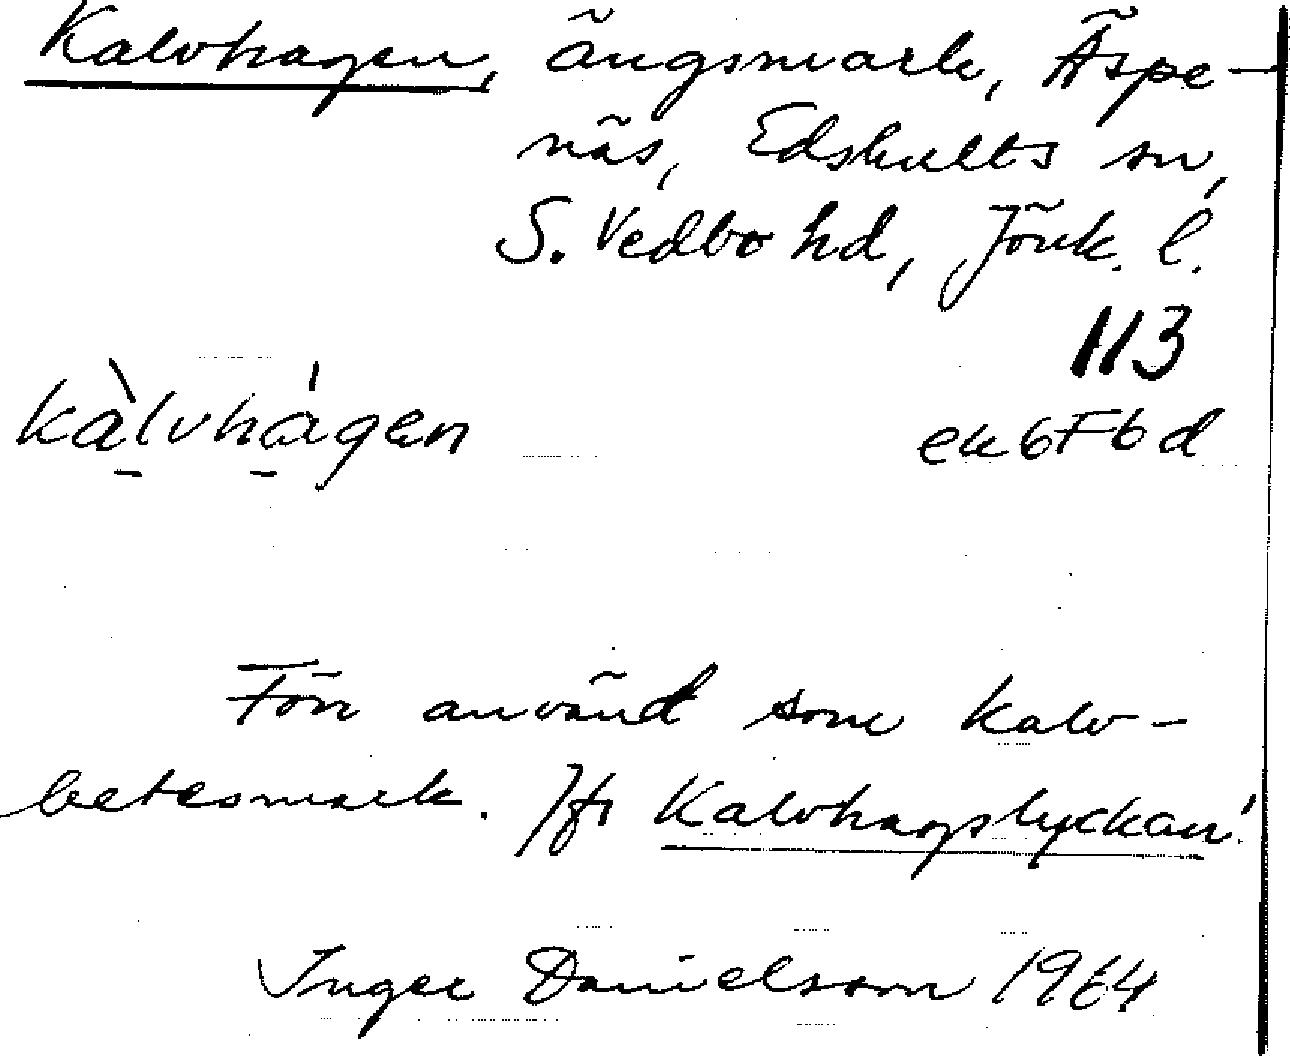 Kalvhagen, ängsmark, Äspe-
näs, Edshults sn,
S. Vedbo hd, Jönk. l.
113
kàlvhágen ek6F6d
Förr använd som kalv-
betesmark. Jfr Kalvhagslyckan!
Inger Danielsson 1964